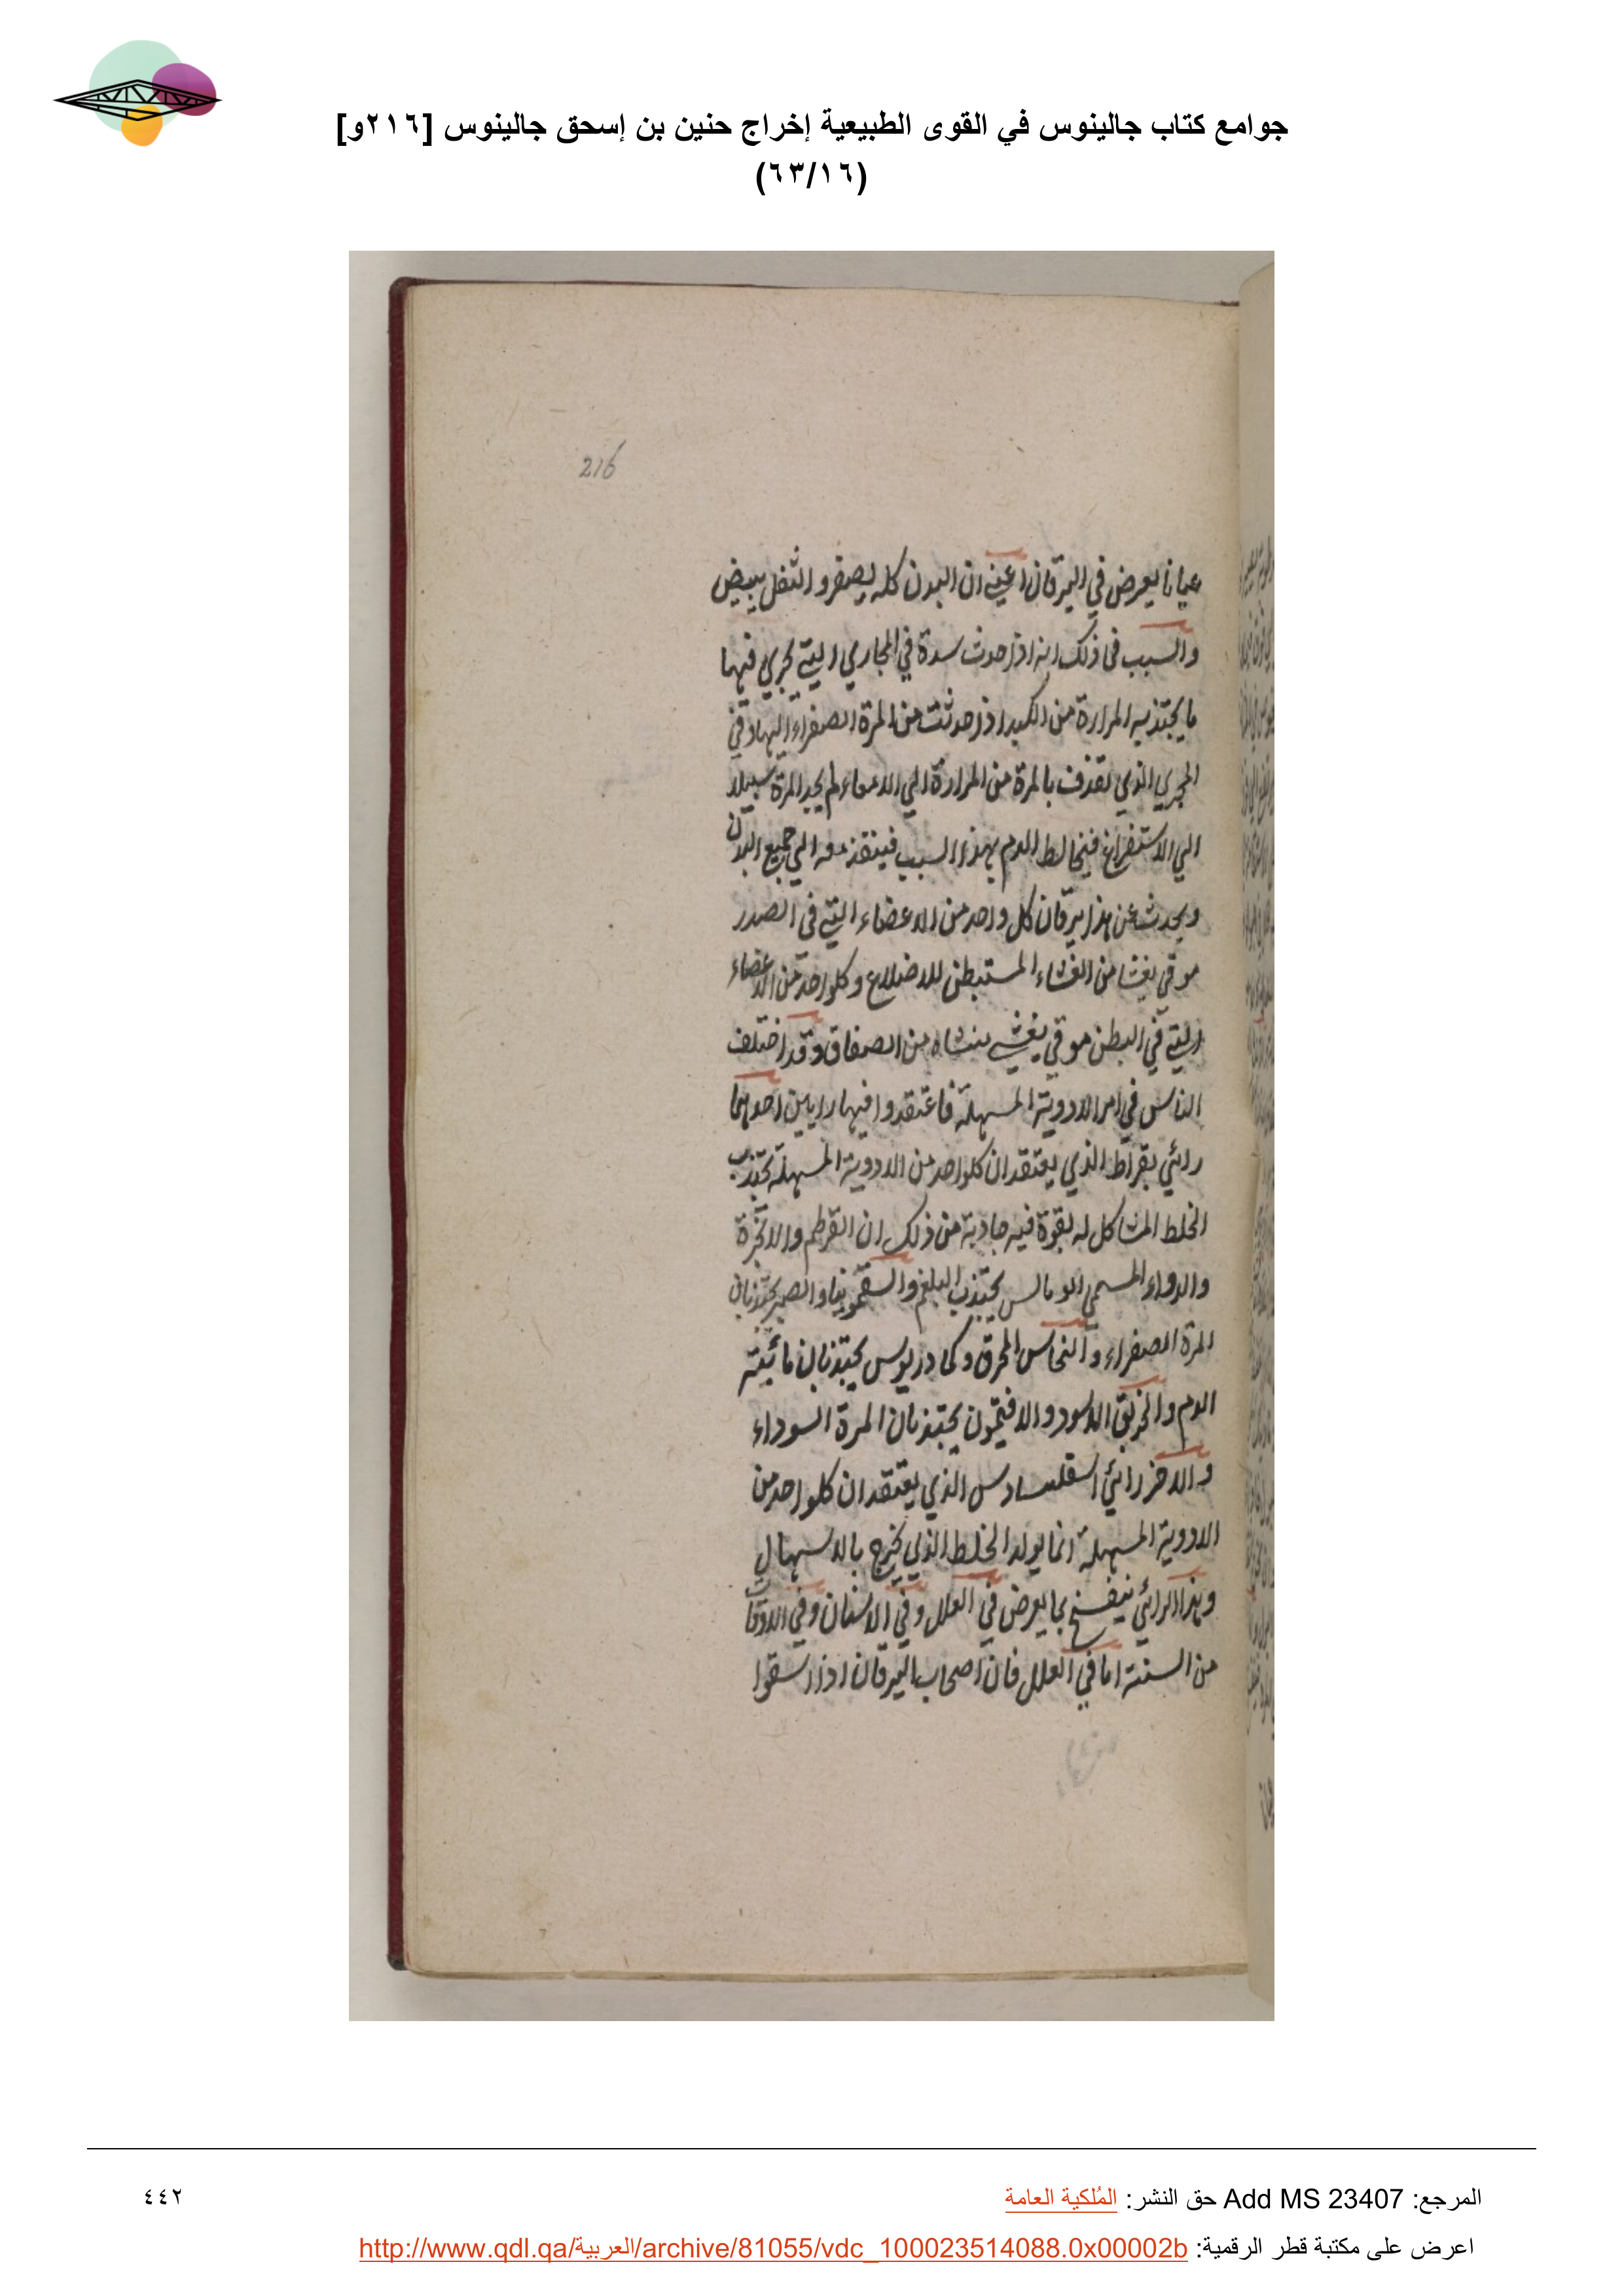 جوامع كتاب جالينوس في القوى الطبيعية إخراج حنين بن إسحق جالينوس [٢١٦و]
(٦٣/١٦)
216
عيانا يعرض في اليرقان اعني ان البدن كله يصفر والثفل يبيض
والسبب في ذلك انه اذا حدث سدة في المجاري التي تجري فيها
ما يجتذبه المرارة من الكبد اذا حدثت من المرة الصفراء اليها وفي
المجري الذي تقذف بالمرة من المرارة الي الامعاء لم يجد المرة سبيلا
الي الاستفراغ فيخالط الدم بهذا السبب فينفذ معه الي جميع البدن
ويحدث عن هذا يرقان كل واحد من الاعضاء التي في الصدر
موقي بغشا من الغشاء المستبطن للاضلاع وكلواحد من الاعضاء
التي في البطن موقي بغشي منشاه من الصفاق وقد اختلف
الناس في امر الادوية المسهلة فاعتقدوا فيها رايين احدهما
رائي بقراط الذي يعتقد ان كلواحد من الادوية المسهلة يجتذب
الخلط المشاكل له بقوة فيه جاذبة من ذلك ان القرطم والانجرة
والدواء المسمي يجتذب البلغم والسقمونيا والصبر يجتذبان
المرة الصفراء والنحاس المحرق وكمادريوس يجتذبان مائية
الدم والخربق الاسود والافتيمون يجتذبان المرة السوداء
والاخر رائي اسقلسادس الذي يعتقد ان كلواحد من
الادوية المسهلة انما يولد الخلط الذي يخرج بالاسهال
وهذا الرائي ينفسخ بما يعرض في العلل وفي الاسنان وفي الاوقات
من السنة اما في العلل فان اصحاب اليرقان اذا سقوا
المرجع: Add MS 23407 حق النشر: المُلكية العامة
٤٤٢
اعرض على مكتبة قطر الرقمية: http://www.qdl.qa/العربية/archive/81055/vdc_100023514088.0x00002b